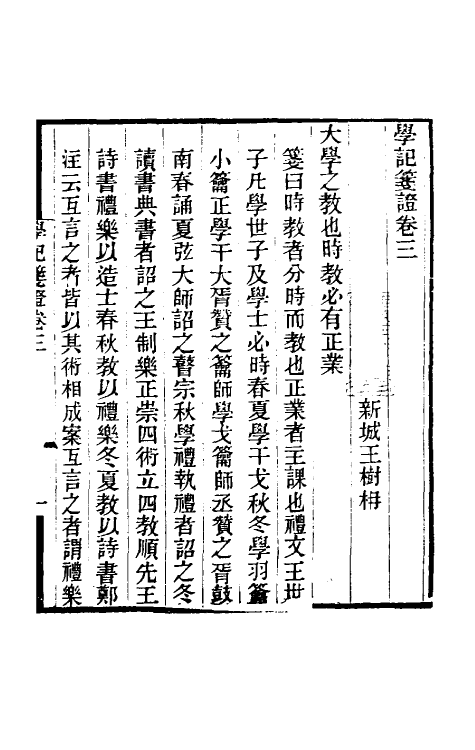 學記箋證卷三
新城王樹枏
大學之教也時教必有正業
箋曰時教者分時而教也正業者主課也禮文王世
子凡學世子及學士必時春夏學干戈秋冬學羽籥
小籥正學干大胥贊之籥師學戈籥師丞贊之胥鼓
南春誦夏弦大師詔之瞽宗秋學禮執禮者詔之冬
讀書典書者詔之王制樂正崇四術立四教順先王
詩書禮樂以造士春秋教以禮樂冬夏教以詩書鄭
注云互言之者皆以其術相成案互言之者謂禮樂
學記箋證卷三
一